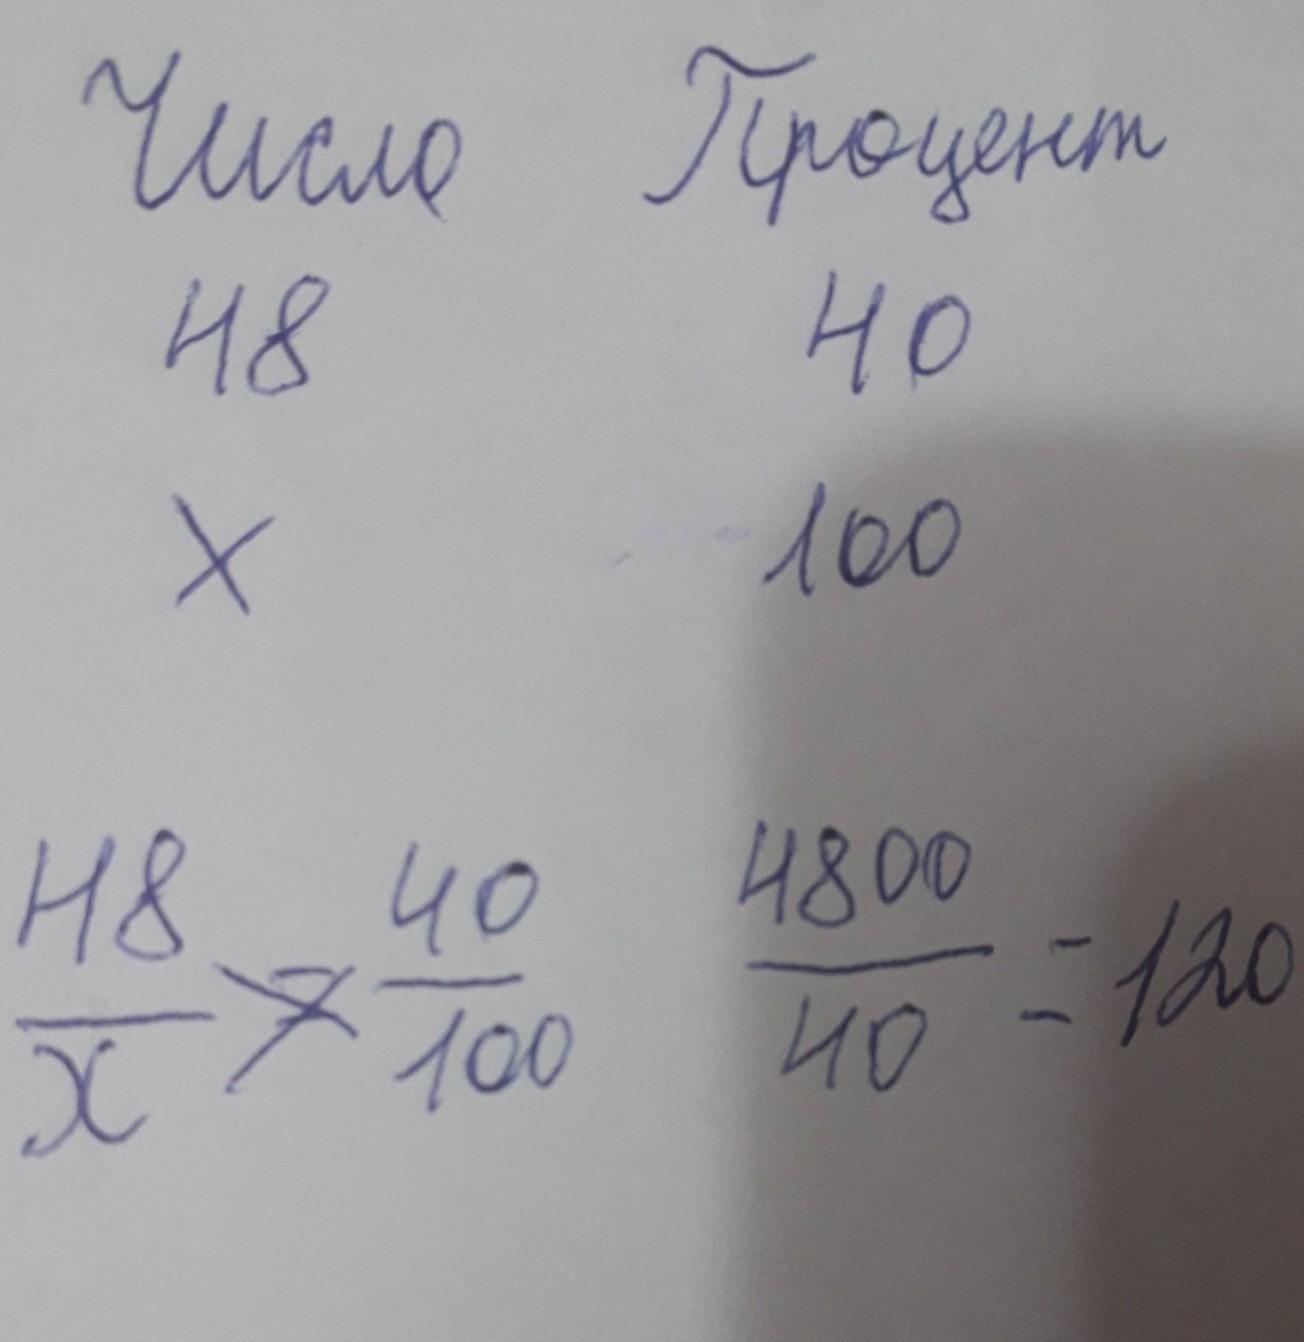 Число Процент
48 40
х 100
48/x = 40/100 4800/40 = 120